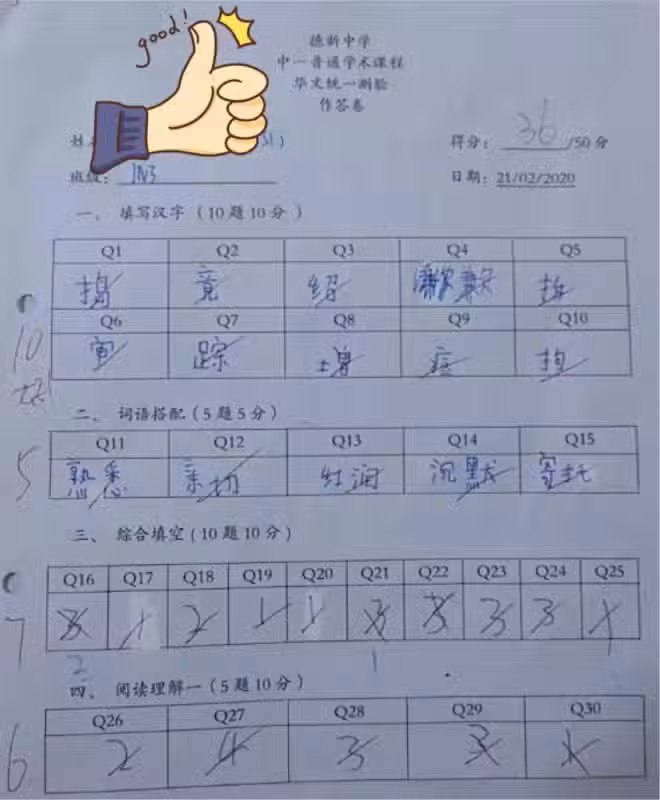 good!
德新中学
中一普通学术课程
华文统一测验
作答卷
得分: 36 /50分
班级: 1N3
日期: 21/02/2020
一、 填写汉字 (10题10分)
Q1 Q2 Q3 Q4 Q5
捣 竟 绍
Q6 Q7 Q8 Q9 Q10
踪
10
二、 词语搭配 (5题5分)
Q11 Q12 Q13 Q14 Q15
5 熟悉 亲切 红润 沉默 寄托
三、 综合填空 (10题10分)
Q16 Q17 Q18 Q19 Q20 Q21 Q22 Q23 Q24 Q25
7 3 1 2 1 1 3 3 3 3 1
2 1
四、 阅读理解一 (5题10分)
Q26 Q27 Q28 Q29 Q30
6 2 4 3 3 1